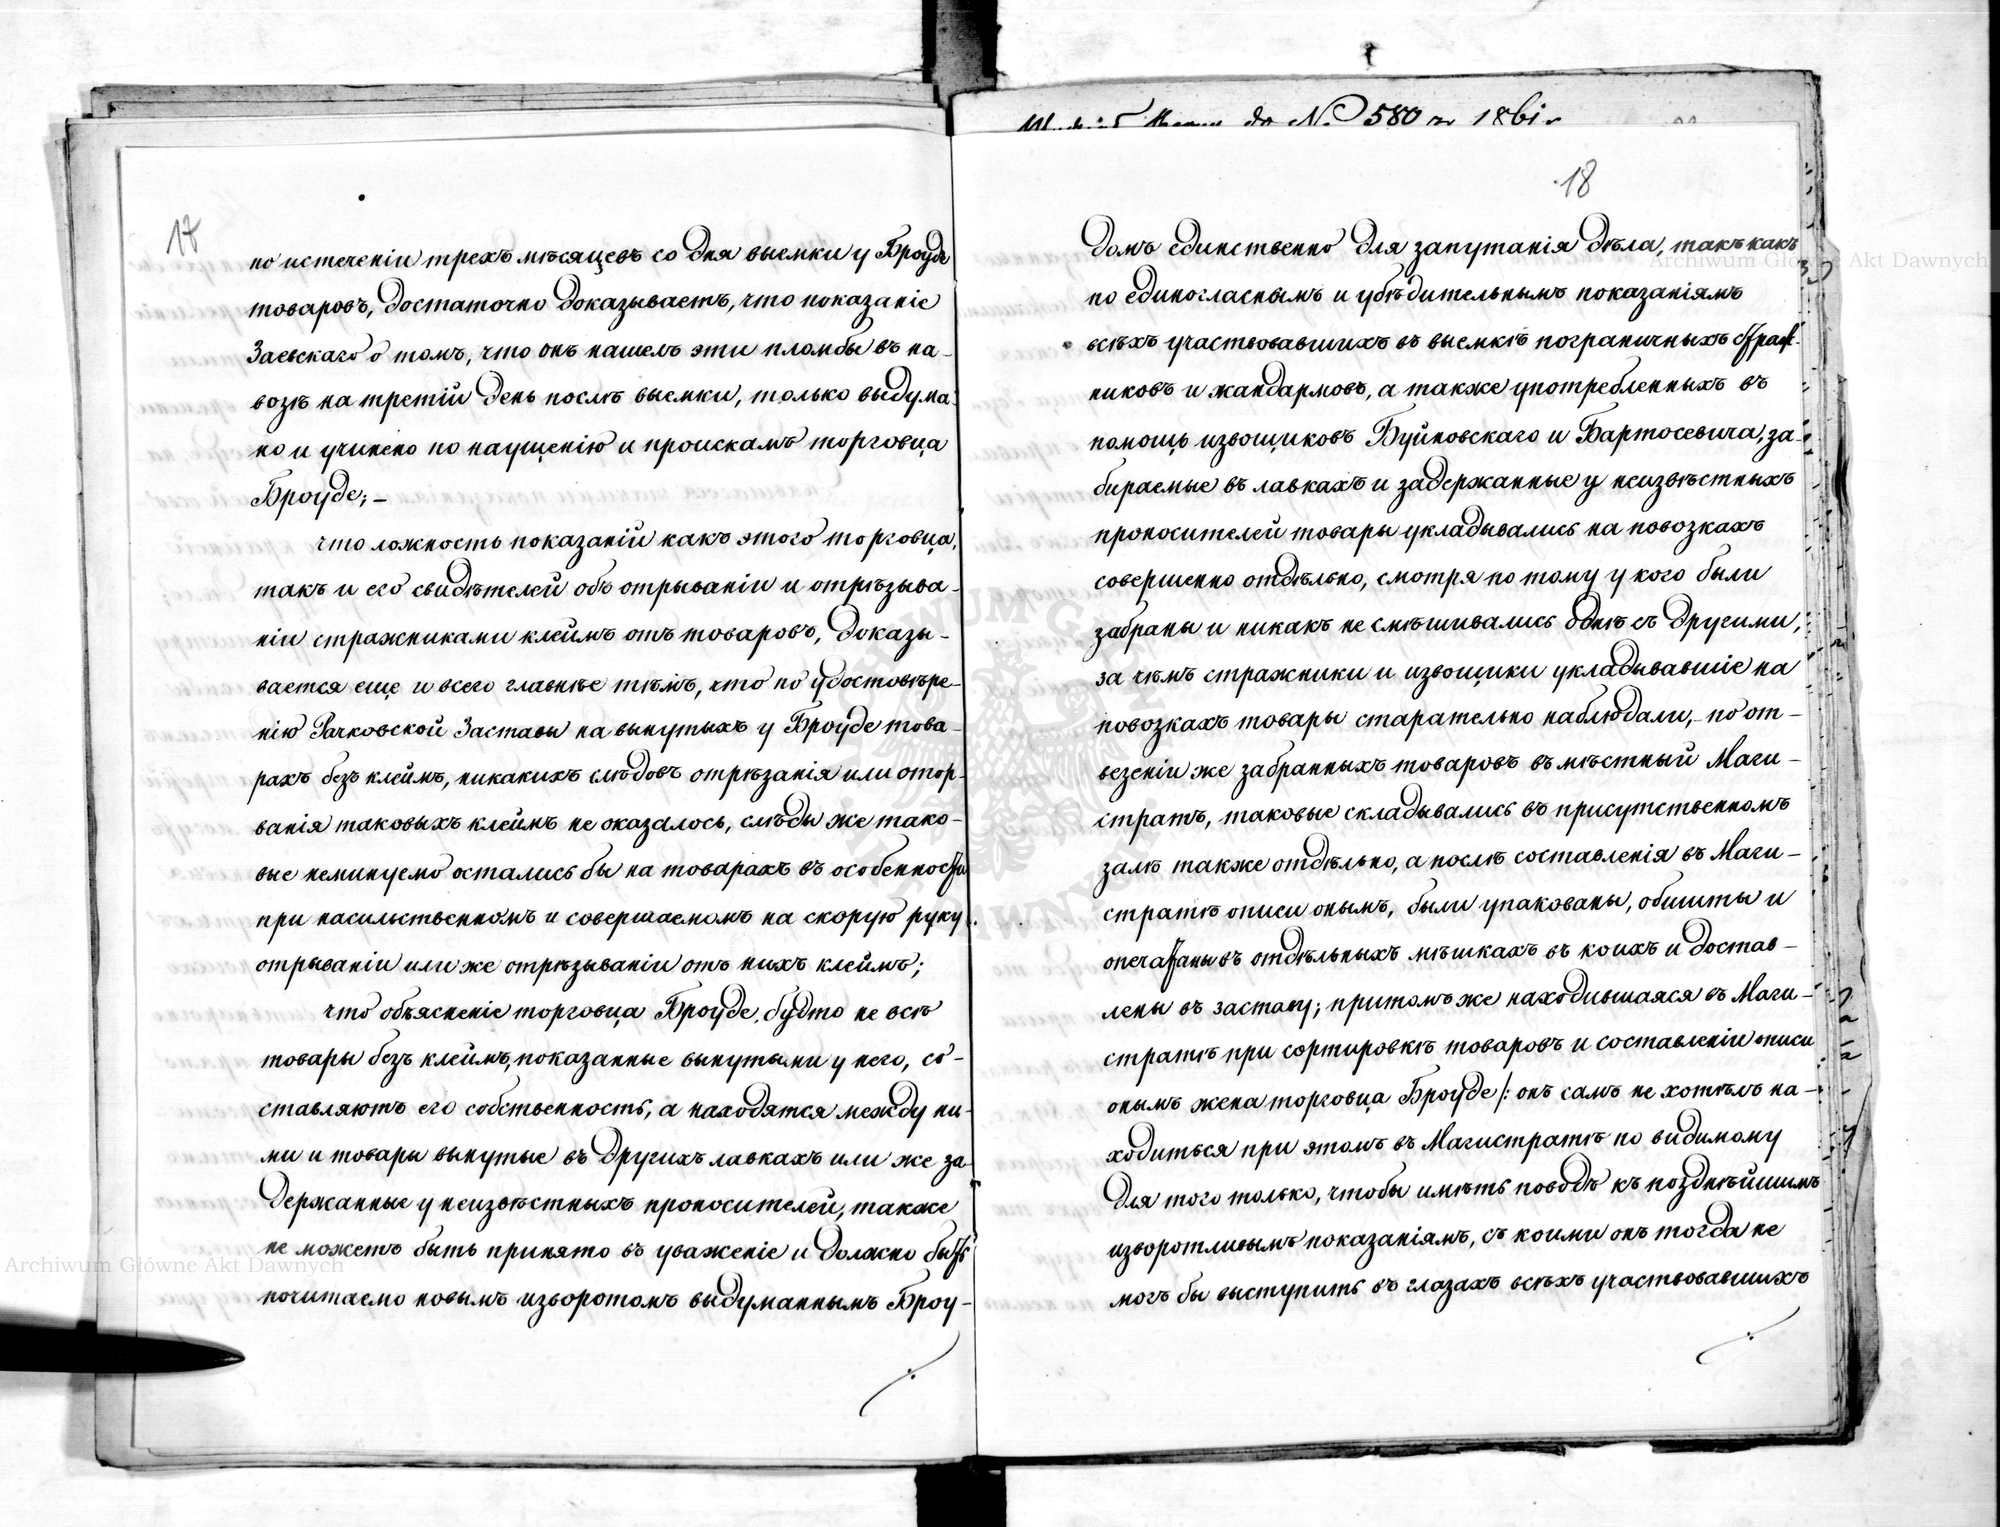 17
по истеченіи трехъ мѣсяцевъ со дня выемки у Броуде
товаровъ, достаточно доказываетъ, что показаніе
Заевскаго о томъ, что онъ нашелъ эти пломбы въ на-
возѣ на третій день послѣ выемки, только выдума-
но и учинено по наущенію и проискамъ торговца
Броуде; –
что ложность показаній какъ этого торговца,
такъ и его свидѣтелей объ отрываніи и отрѣзыва-
ніи стражниками клеймъ отъ товаровъ, доказы-
вается еще и всего главнѣе тѣмъ, что по удостовѣре-
нію Рачковской Заставы на вынутыхъ у Броуде това-
рахъ безъ клеймъ, никакихъ слѣдовъ отрѣзанія или отор-
ванія таковыхъ клеймъ не оказалось, слѣды же тако-
вые неминуемо остались бы на товарахъ въ особенности
при насильственномъ и совершаемомъ на скорую руку
отрываніи или же отрѣзываніи отъ нихъ клеймъ;
что объясненіе торговца Броуде, будто не всѣ
товары безъ клеймъ, показанные вынутыми у него, со-
ставляютъ его собственность, а находятся между ни-
ми и товары вынутые въ другихъ лавкахъ или же за-
держанные у неизвѣстныхъ проносителей, также
не можетъ быть принято въ уваженіе и должно быть
почитаемо новымъ изворотомъ выдуманнымъ Броу-
до № 580 1861
18
домъ единственно для запутанія дѣла, такъ какъ
по единогласнымъ и убѣдительнымъ показаніямъ
всѣхъ участвовавшихъ въ выемкѣ пограничныхъ страж-
никовъ и жандармовъ, а также употребленныхъ въ
помощь извощиковъ Буйновскаго и Бартосевича, за-
бираемые въ лавкахъ и задержанные у неизвѣстныхъ
проносителей товары укладывались на повозкахъ
совершенно отдѣльно, смотря по тому у кого были
забраны и никакъ не смѣшивались однѣ съ другими,
за чѣмъ стражники и извощики укладывавшіе на
повозкахъ товары старательно наблюдали, по от-
везеніи же забранныхъ товаровъ въ мѣстный Маги-
стратъ, таковые складывались въ присутственномъ
залѣ также отдѣльно, а послѣ составленія въ Маги-
стратѣ описи онымъ, были упакованы, обшиты и
опечатаны въ отдѣльныхъ мѣшкахъ въ коихъ и достав-
лены въ заставу; притомъ же находившаяся въ Маги-
стратѣ при сортировкѣ товаровъ и составленіи описи
онымъ жена торговца Броуде /: онъ самъ не хотѣлъ на-
ходиться при этомъ въ Магистратѣ по видимому
для того только, чтобы имѣть поводъ къ позднѣйшимъ
изворотливымъ показаніямъ, съ коими онъ тогда не
могъ бы выступить въ глазахъ всѣхъ участвовавшихъ
Archiwum Główne Akt Dawnych
Archiwum Główne Akt Dawnych